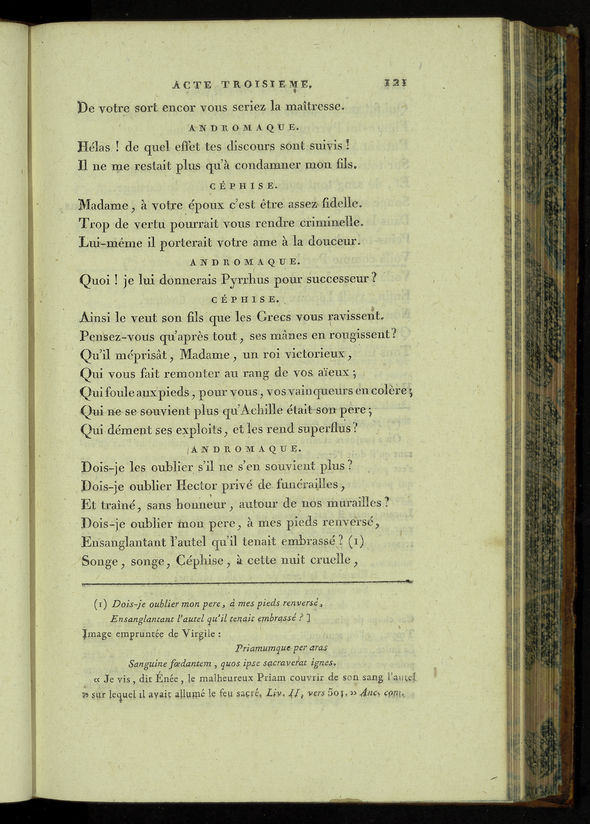 ACTE TROISIEME. 121
De votre sort encor vous seriez la maîtresse.
ANDROMAQUE.
Hélas ! de quel effet tes discours sont suivis !
Il ne me restait plus qu'à condamner mon fils.
CÉPHISE.
Madame, à votre époux c'est être assez fidelle.
Trop de vertu pourrait vous rendre criminelle.
Lui-même il porterait votre ame à la douceur.
ANDROMAQUE.
Quoi ! je lui donnerais Pyrrhus pour successeur ?
CÉPHISE.
Ainsi le veut son fils que les Grecs vous ravissent.
Pensez-vous qu'après tout, ses mânes en rougissent ?
Qu'il méprisât, Madame, un roi victorieux,
Qui vous fait remonter au rang de vos aïeux ;
Qui foule aux pieds, pour vous, vos vainqueurs en colère ;
Qui ne se souvient plus qu'Achille était son pere ;
Qui dément ses exploits, et les rend superflus ?
ANDROMAQUE.
Dois-je les oublier s'il ne s'en souvient plus ?
Dois-je oublier Hector privé de funérailles,
Et traîné, sans honneur, autour de nos murailles ?
Dois-je oublier mon pere, à mes pieds renversé,
Ensanglantant l'autel qu'il tenait embrassé ? (1)
Songe, songe, Céphise, à cette nuit cruelle,
(1) Dois-je oublier mon pere, à mes pieds renversé,
Ensanglantant l'autel qu'il tenait embrassé ? ]
Image empruntée de Virgile :
Priamumque per aras
Sanguine fœdantem, quos ipse sacraverat ignes.
« Je vis, dit Énée, le malheureux Priam couvrir de son sang l'autel
» sur lequel il avait allumé le feu sacré. Liv. II, vers 501. » Anc. com.